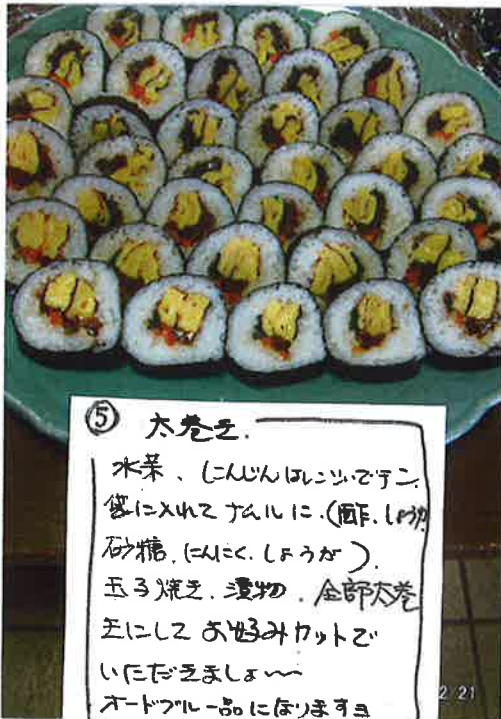 ⑤ 太巻き.
水菜、にんじんはレンジでチン.
袋に入れてナムルに.(酢、しょうゆ
砂糖、にんにく、しょうが).
玉子焼き、漬物、全部太巻
きにして お好みカットで
いただきましょ〜
オードブル一品になりますヨ
2 21